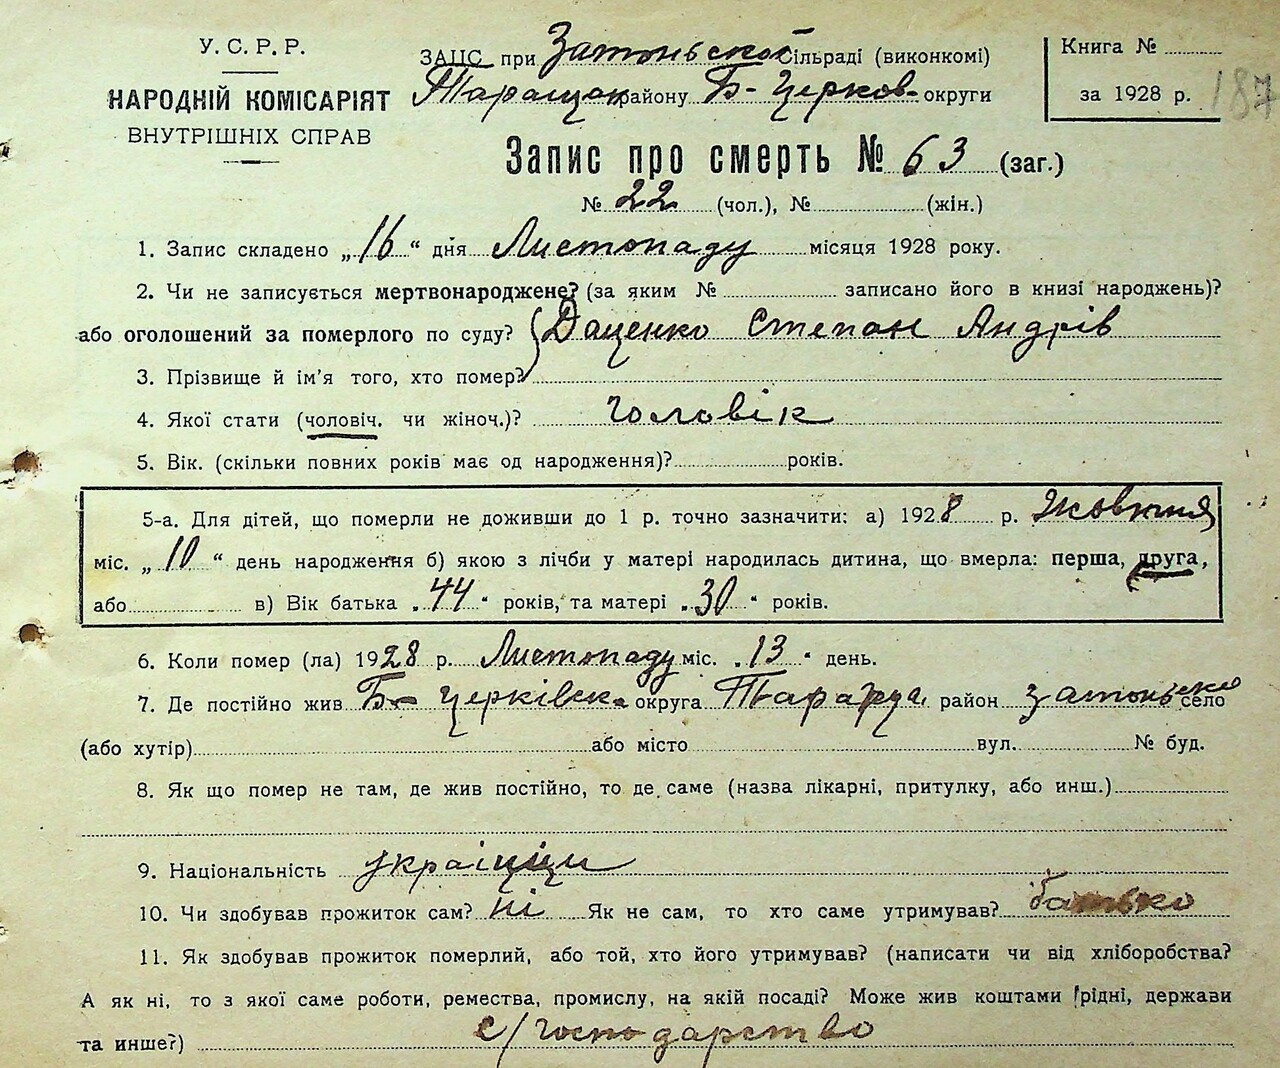 У. С. Р. Р.
НАРОДНІЙ КОМІСАРІЯТ
ВНУТРІШНІХ СПРАВ
ЗАЦС при Затонської Сільраді (виконкомі)
Таращан району Б-Церков. округи
Книга №
за 1928 р. 187
Запис про смерть № 63 (заг.)
№ 22 (чол.), № (жін.)
1. Запис складено „16“ дня Листопаду місяця 1928 року.
2. Чи не записується мертвонароджене? (за яким № записано його в книзі народжень)?
або оголошений за померлого по суду? Даценко Степан Андрів
3. Прізвище й ім'я того, хто помер?
4. Якої стати (чоловіч. чи жіноч.)? чоловік
5. Вік. (скільки повних років має од народження)? років.
5-а. Для дітей, що померли не доживши до 1 р. точно зазначити: а) 1928 р. Жовтня
міс. „10“ день народження б) якою з лічби у матері народилась дитина, що вмерла: перша, друга,
або в) Вік батька „44“ років, та матері „30“ років.
6. Коли помер (ла) 1928 р. Листопаду міс. „13“ день.
7. Де постійно жив Б-Церківск. округа район Затонсько село
(або хутір) або місто вул. № буд.
8. Як що помер не там, де жив постійно, то де саме (назва лікарні, притулку, або инш.)
9. Національність українці
10. Чи здобував прожиток сам? ні Як не сам, то хто саме утримував? батько
11. Як здобував прожиток померлий, або той, хто його утримував? (написати чи від хліборобства?
А як ні, то з якої саме роботи, ремества, промислу, на якій посаді? Може жив коштами рідні, держави
та инше?) с/господарство